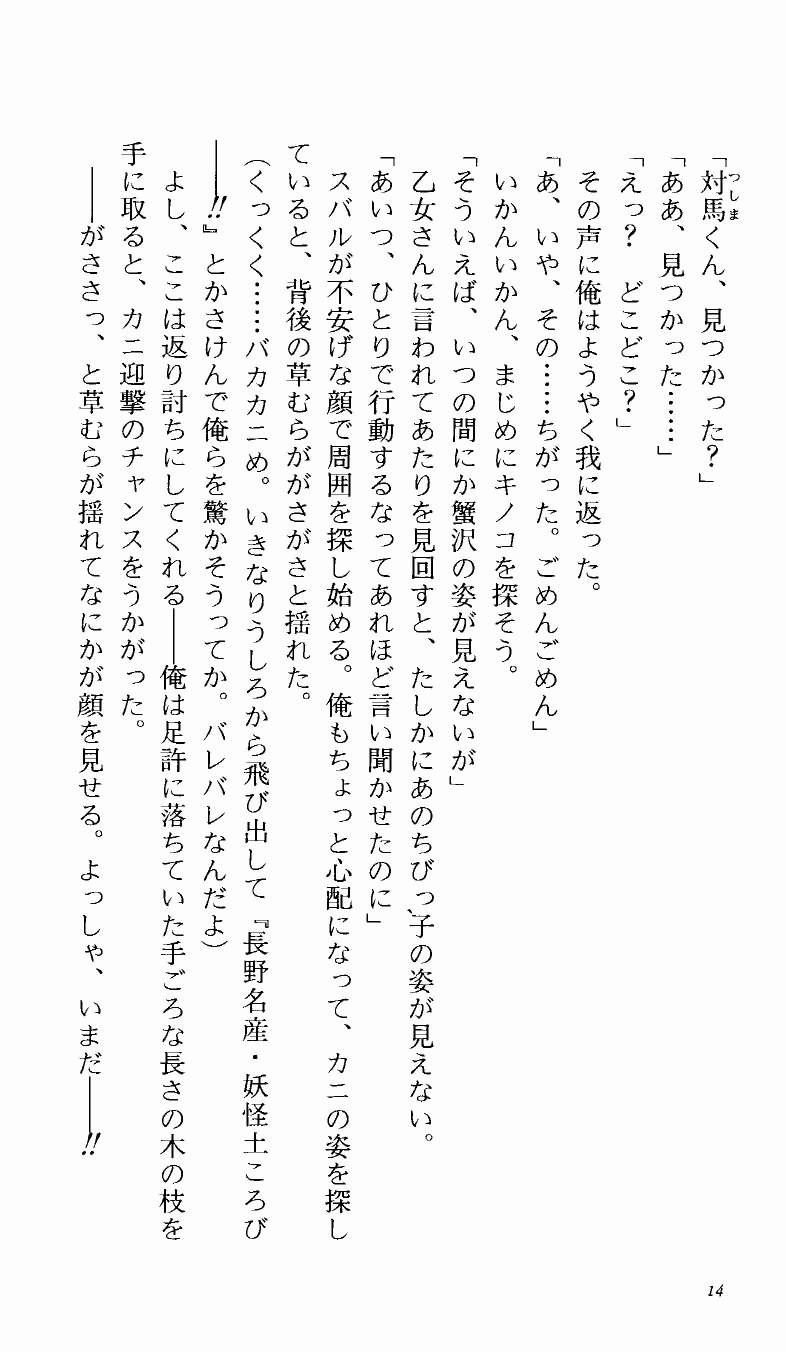 「対馬くん、見つかった?」
つしま
「ああ、見つかった……」
「えっ?　どこどこ?」
その声に俺はようやく我に返った。
「あ、いや、その……ちがった。ごめんごめん」
いかんいかん、まじめにキノコを探そう。
「そういえば、いつの間にか蟹沢の姿が見えないが」
乙女さんに言われてあたりを見回すと、たしかにあのちびっ子の姿が見えない。
「あいつ、ひとりで行動するなってあれほど言い聞かせたのに」
スバルが不安げな顔で周囲を探し始める。俺もちょっと心配になって、カニの姿を探し
ていると、背後の草むらががさがさと揺れた。
(くっくく……バカカニめ。いきなりうしろから飛び出して『長野名産・妖怪土ころび
――!!』とかさけんで俺らを驚かそうってか。バレバレなんだよ)
よし、ここは返り討ちにしてくれる――俺は足許に落ちていた手ごろな長さの木の枝を
手に取ると、カニ迎撃のチャンスをうかがった。
――がささっ、と草むらが揺れてなにかが顔を見せる。よっしゃ、いまだ――!!
14